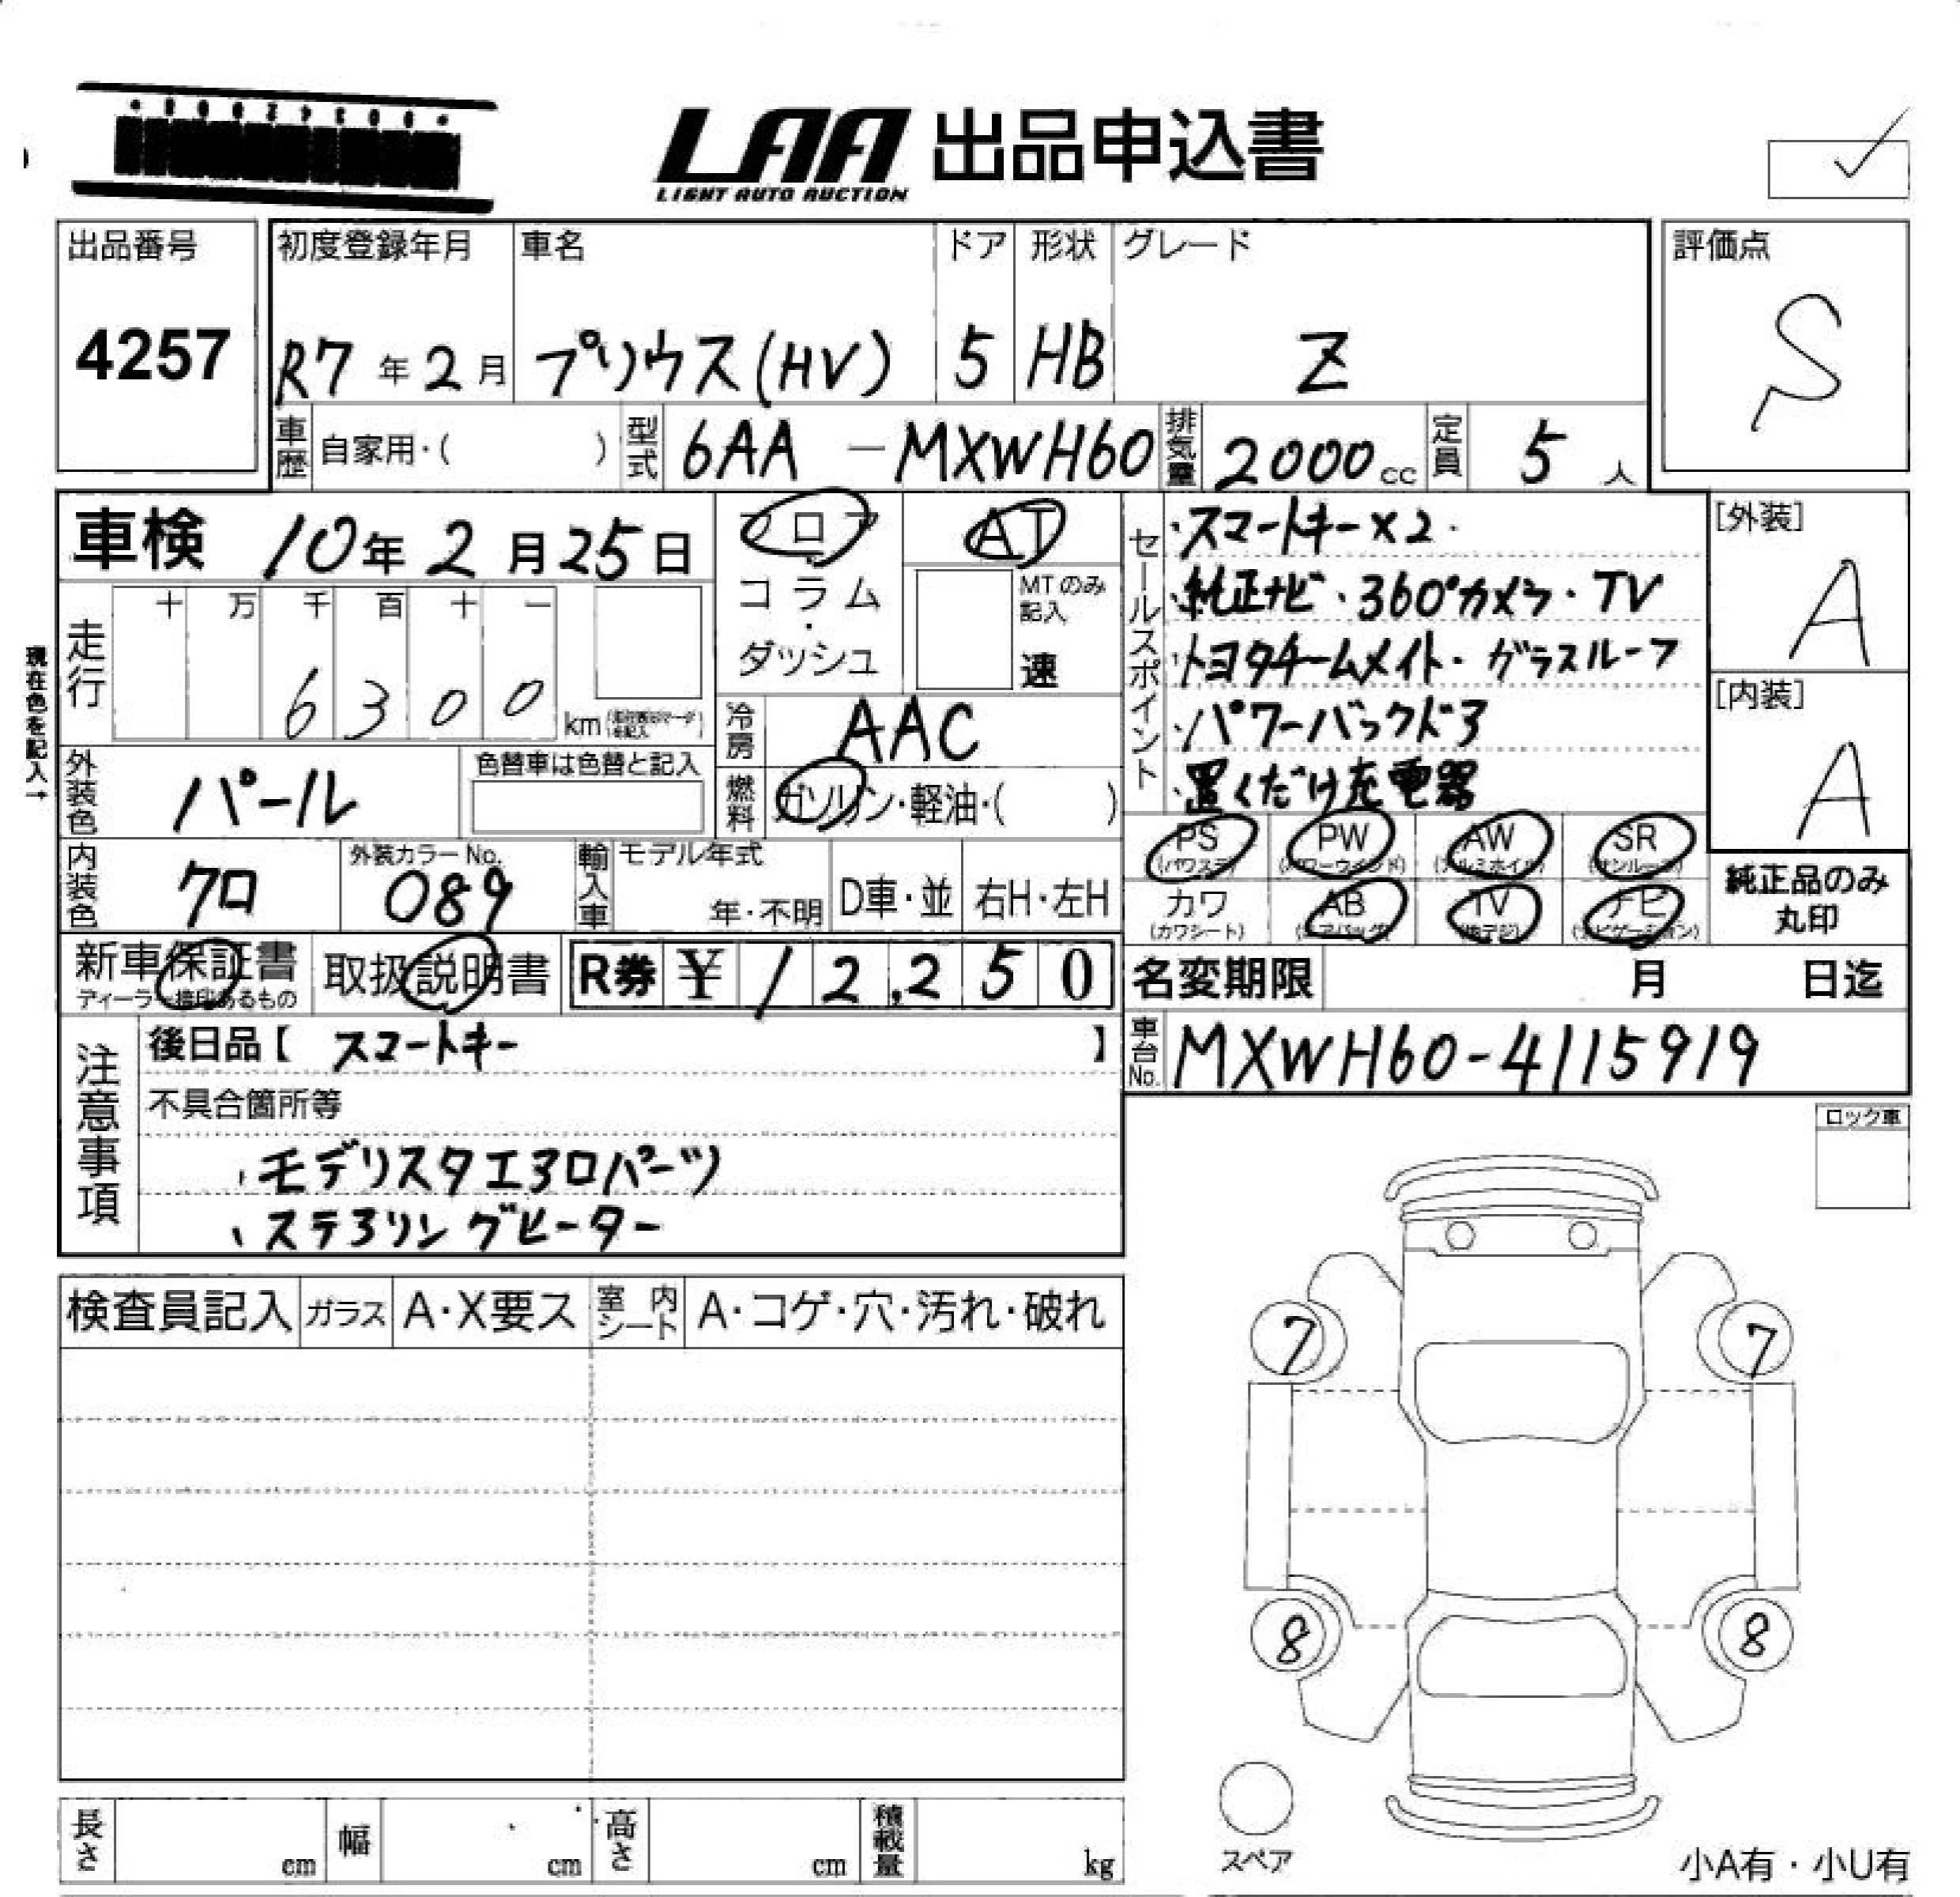 LAA 出品申込書
LIGHT AUTO AUCTION
出品番号
4257
初度登録年月
R7年2月
車名
プリウス(HV)
ドア
5
形状
HB
グレード
Z
評価点
S
車歴 自家用・( )
型式 6AA-MXWH60
排気量 2000cc
定員 5人
車検 10年2月25日
フロア
・
コラム
・
ダッシュ
AT
MTのみ
記入
速
セールスポイント
・スマートキー×2・
・純正ナビ・360°カメラ・TV
・トヨタチームメイト・ガラスルーフ
・パワーバックドア
・置くだけ充電器
[外装]
A
[内装]
A
現在色を記入→
走行
十 万 千 百 十 一
6 3 0 0 km
冷房 AAC
外装色 パール
色替車は色替と記入
燃料 ガソリン・軽油・( )
PS (パワステ)
PW (パワーウインド)
AW (アルミホイル)
SR (サンルーフ)
カワ (カワシート)
AB (エアバッグ)
TV (地デジ)
ナビ (ナビゲーション)
純正品のみ
丸印
内装色 クロ
外装カラーNo.
089
輸入車 モデル年式
年・不明
D車・並
右H・左H
新車保証書
ディーラー捺印あるもの
取扱説明書
R券 ¥12,250
名変期限 月 日迄
車台No. MXWH60-4115919
注意事項
後日品【 スマートキー 】
不具合箇所等
、モデリスタエアロパーツ
、ステアリングヒーター
ロック車
検査員記入 ガラス A・X要ス 室内シート A・コゲ・穴・汚れ・破れ
7 7
8 8
スペア
長さ cm
幅 cm
高さ cm
積載量 kg
小A有・小U有